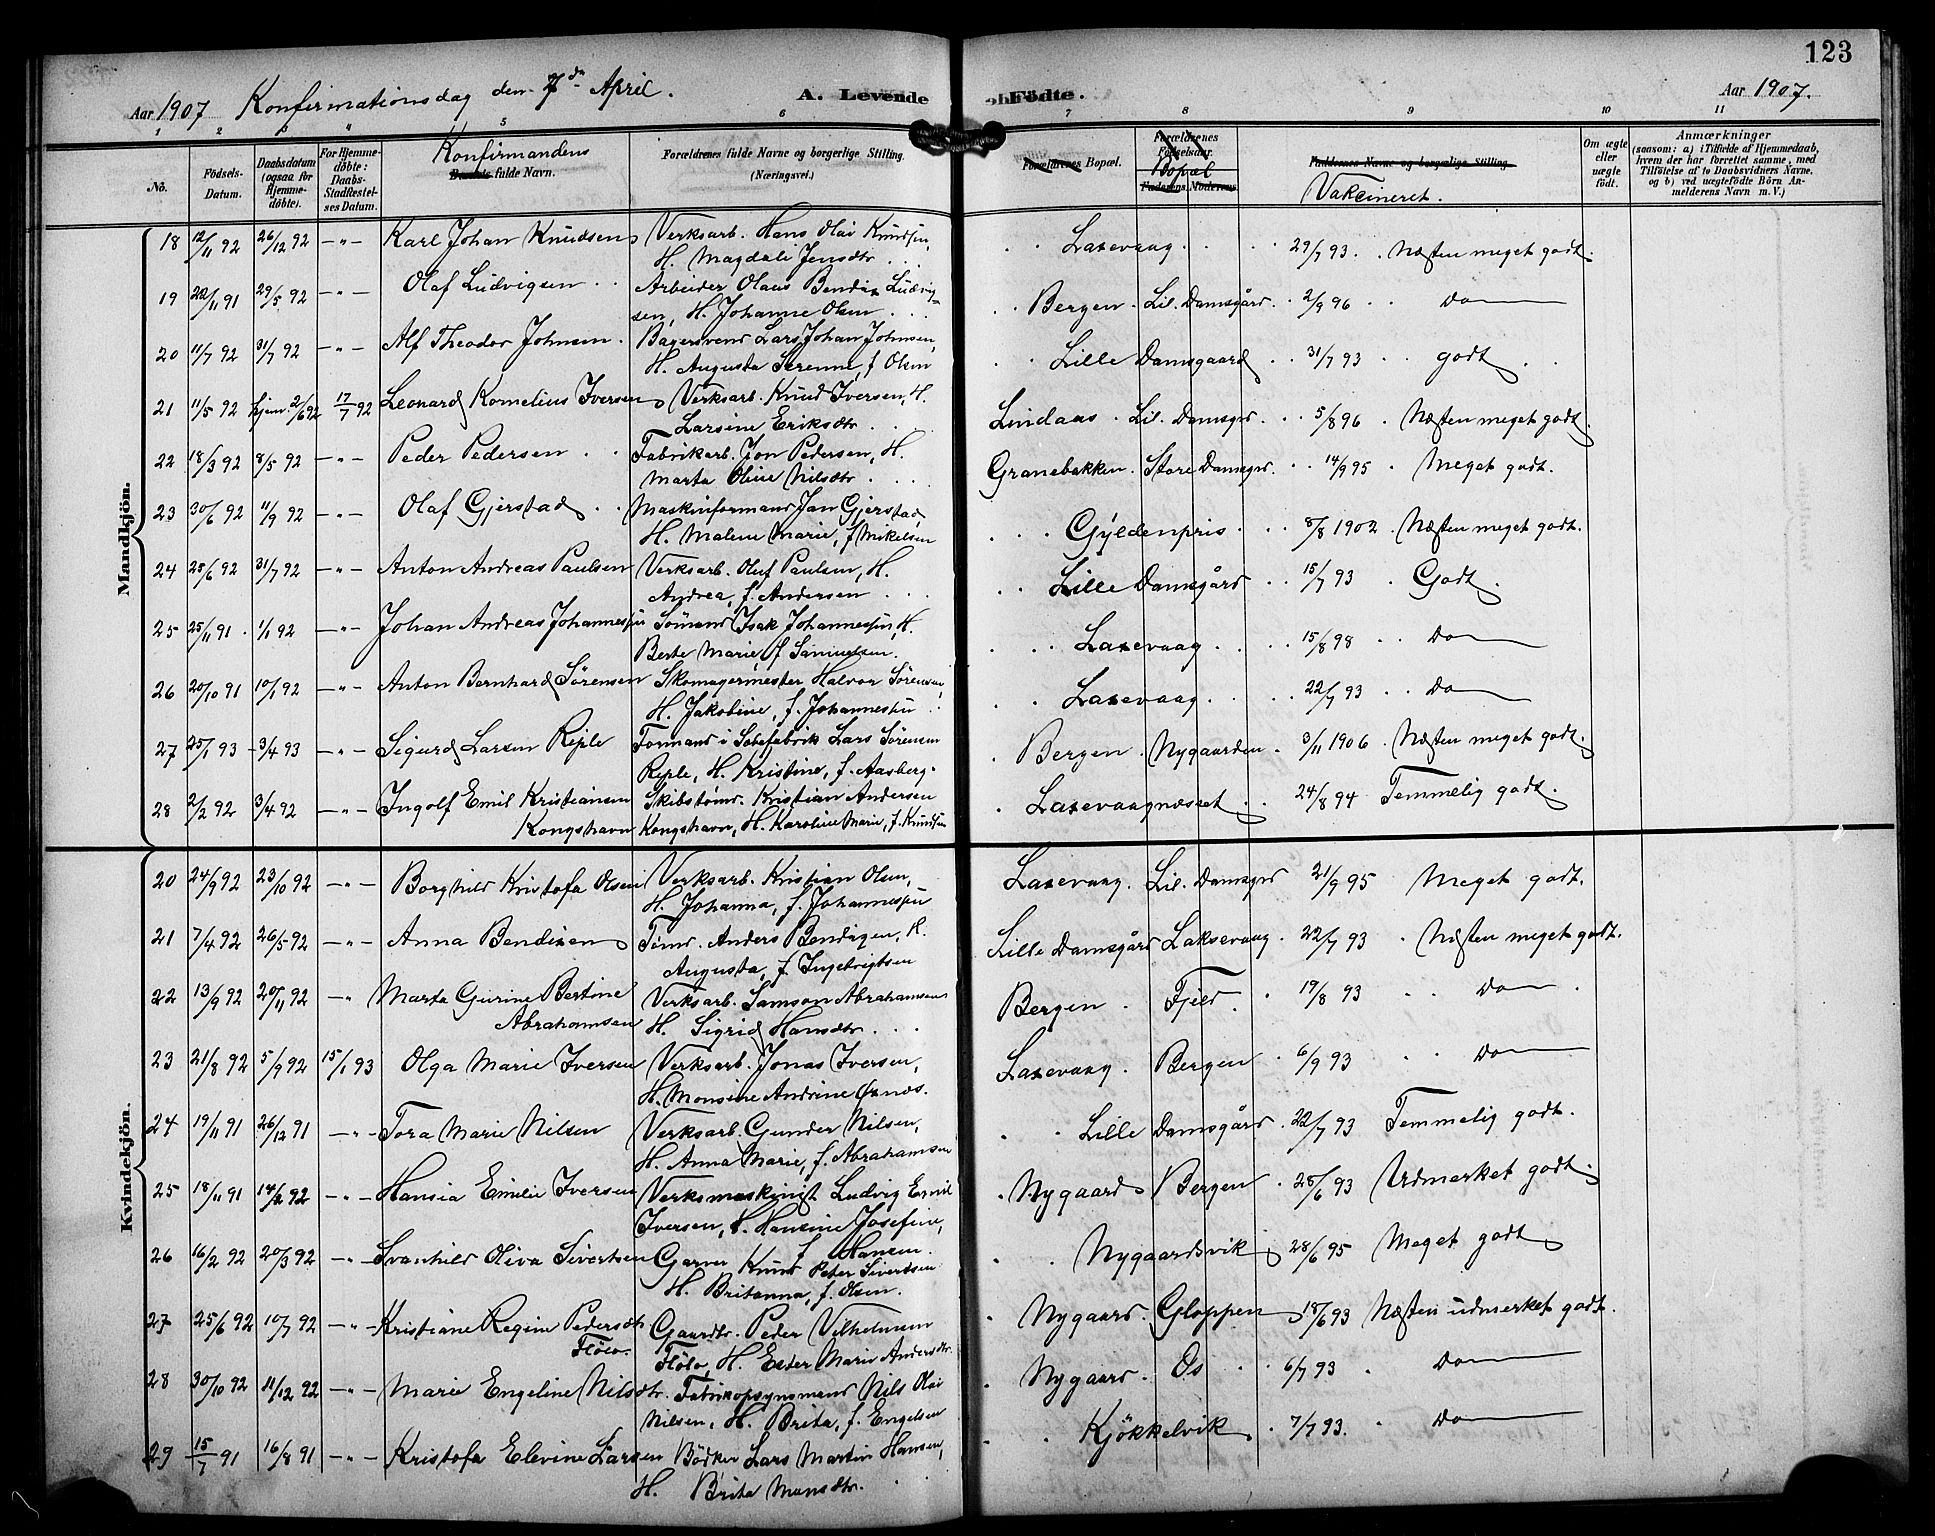 123
Aar 1907 Konfirmationsdag den 7de April. A. Levende Födte. Aar 1907.
1 2 3 4 5 6 7 8 9 10 11
No.
Födsels-Datum.
Daabsdatum (ogsaa for Hjemmedöbte).
For Hjemmedöbte: Daabs-Stadfæstelses Datum.
Konfirmandens
Barnets fulde Navn.
Forældrenes fulde Navne og borgerlige Stilling.
(Næringsvei.)
Forældrenes Bopæl.
Forældrenes Födselsaar.
Bopæl
Faderens Moderens
Faddernes Navne og borgerlige Stilling
Vakcineret.
Om ægte eller uægte födt.
Anmærkninger
(saasom: a) i Tilfælde af Hjemmedaab,
hvem der har forrettet samme, med
Tilföielse af to Daabsvidners Navne,
og b) ved uægtefödte Börn Anmelderens Navn m. V.)
Mandkjön.
18 12/11 92 26/12 92 -"- Karl Johan Knudsen Verksarb. Hans Olai Knudsen, Laxevaag 29/7 93. Næsten meget godt.
H. Magdali Jensdtr
19 22/11 91 29/5 92 -"- Olaf Ludvigsen Arbeider Olaus Bendix Ludvig- Bergen. Lil. Damsgård. 2/9 96 Do
sen, H. Johanne Olsen
20 11/7 92 31/7 92 -"- Alf Theodor Johnsen. Bagersvend Lars Johan Johnsen, Lille Damsgaard 31/7 93 godt
H. Augusta Serenne, f. Olsen
21 11/5 92 hjem. 2/6 92 17/7 92 Leonard Kornelius Iversen Verksarb. Knud Iversen, H. Lindaas. Lil. Damsgrd. 5/8 96 Næsten meget godt.
Larsine Eriksdtr.
22 18/3 92 8/5 92 -"- Peder Pedersen Fabrikarb. Jon Pedersen, H. Granebakken. Store Damsgrd. 14/9 95 Meget godt.
Marta Oline Nilsdtr.
23 30/6 92 11/9 92 -"- Olaf Gjerstad Maskinformand Jan Gjerstad Gyldenpris 8/8 1902 Næsten meget godt.
H. Malene Marie, f. Mikelsen
24 25/6 92 31/7 92 -"- Anton Andreas Paulsen Verksarb. Oluf Paulsen, H. Lille Damsgård 15/7 93 Godt.
Andrea, f. Andersen
25 25/11 91. 1/1 92 -"- Johan Andreas Johannesen Sømand Isak Johannesen, H. Laxevaag 15/8 98 Do
Berte Marie f. Samuelsen.
26 20/10 91 10/1 92 -"- Anton Bernhard Sörensen Skomagermester Halvor Sörensen, Laxevaag 22/7 93 Do
H. Jakobine, f. Johannesen
27 25/1 93 3/4 93 -"- Sigurd Larsen Reple Formand i Sebefabrik Lars Sörensen Bergen. Nygaarden. 3/11 1906. Næsten meget godt.
Reple, H. Kristine, f. Aasberg.
28 2/2 92 3/4 92 -"- Ingolf Emil Kristiansen Skibstømr. Kristian Andersen Laxevaagnæsset 24/8 94 Temmelig godt.
Kongshavn Kongshavn, H. Karoline Marie, f. Knudsen
Kvindekjön.
20 24/9 92 23/10 92 -"- Borghild Kristofa Olsen Verksarb. Kristian Olsen, Laxevaag. Lil. Damsgrd 21/9 95 Meget godt.
H. Johanna, f. Johannesen
21 7/4 92 26/5 92 -"- Anna Bendixen Tømr. Anders Bendixen, H. Lille Damsgård Laksevaag. 22/7 93 Næsten meget godt.
Augusta, f. Ingebrigtsen
22 13/9 92 20/11 92 -" Marta Gurine Bertine Verksarb. Samson Abrahamsen Bergen. Fjeld. 19/8 93 Do
Abrahamsen H. Sigrid Hansdtr.
23 21/8 92 5/9 92 15/1 93 Olga Marie Iversen Verksarb. Jonas Iversen, Laxevaag. Bergen 6/9 93 Do
H. Monsine Andrine
24 19/11 91 26/12 91 -"- Tora Marie Nilsen Verksarb. Gunder Nilsen, Lille Damsgård. 22/7 93 Temmelig godt.
H. Anna Marie, f. Abrahamsen
25 18/11 91 14/2 92 -"- Hansia Emilie Iversen Verksmaskinist Ludvig Emil Nygaard Bergen 25/6 93 Udmerket godt.
Iversen, H. Hansine Josefine,
f. Hansen.
26 16/2 92 20/3 92 -"- Svanhild Oliva Sivertsen Garver Knud Peter Sivertsen Nygaardsvik 28/6 95 Meget godt
H. Britanna, f. Olsen.
27 25/6 92 10/7 92 -"- Kristiane Regine Pedersdtr Gaardbr. Peder Vilhelmsen Nygaard. Gloppen 18/6 93 Næsten udmerket godt.
Flölo. Flölo, H. Ester Marie Andersdtr.
28 30/10 92 11/12 92 -"- Marie Engeline Nilsdtr. Fabrikopsynsmand Nils Olai Nygaard. Os 6/7 93 Do
Nilsen, H. Brita, f. Engelsen
29 15/7 91 16/8 91 -"- Kristofa Elevine Larsen Bödker Lars Martin Hansen, Kjøkkelvik 7/7 93. Do
H. Brita Monsdtr.